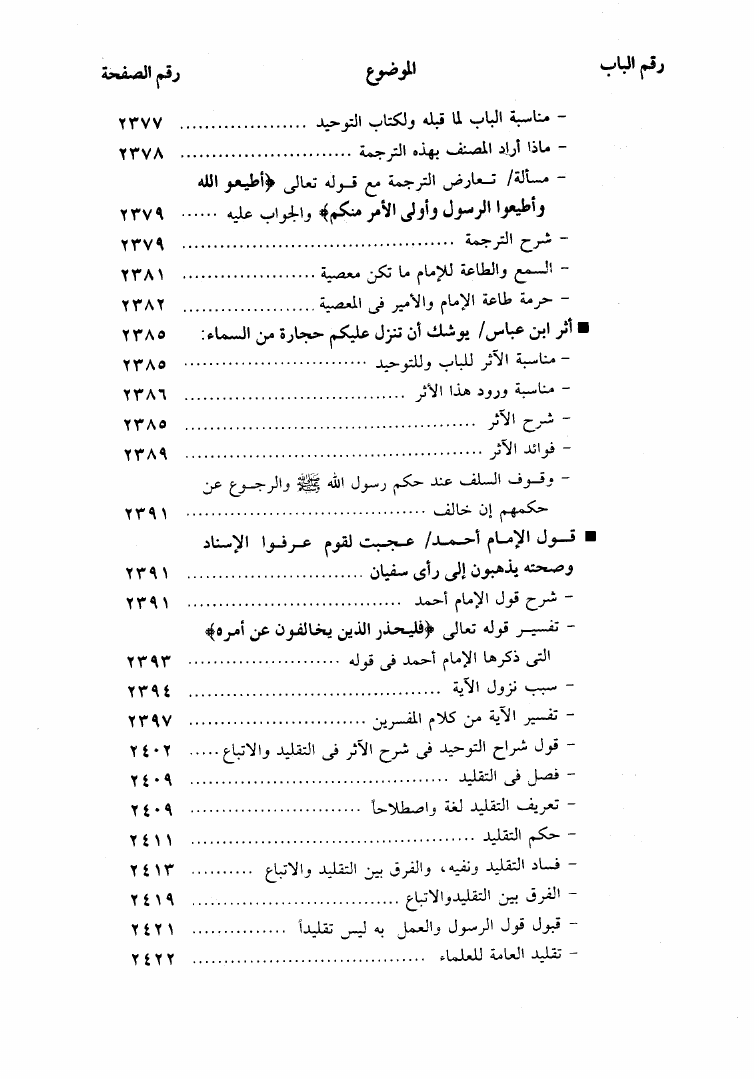 رقم الباب الموضوع رقم الصفحة
- مناسبة الباب لما قبله ولكتاب التوحيد ................... ٢٣٧٧
- ماذا أراد المصنف بهذه الترجمة ........................... ٢٣٧٨
- مسألة/ تعارض الترجمة مع قوله تعالى ﴿أطيعو الله
وأطيعوا الرسول وأولى الأمر منكم﴾ والجواب عليه ...... ٢٣٧٩
- شرح الترجمة ........................................... ٢٣٧٩
- السمع والطاعة للإمام ما تكن معصية ..................... ٢٣٨١
- حرمة طاعة الإمام والأمير فى المعصية ..................... ٢٣٨٢
■ أثر ابن عباس/ يوشك أن تنزل عليكم حجارة من السماء: ٢٣٨٥
- مناسبة الأثر للباب وللتوحيد ............................. ٢٣٨٥
- مناسبة ورود هذا الأثر ................................... ٢٣٨٦
- شرح الأثر .............................................. ٢٣٨٥
- فوائد الأثر ............................................... ٢٣٨٩
- وقوف السلف عند حكم رسول الله ﷺ والرجوع عن
حكمهم إن خالف ...................................... ٢٣٩١
■ قول الإمام أحمد/ عجبت لقوم عرفوا الإسناد
وصحته يذهبون إلى رأى سفيان ............................ ٢٣٩١
- شرح قول الإمام أحمد .................................. ٢٣٩١
- تفسير قوله تعالى ﴿فليحذر الذين يخالفون عن أمره﴾
التى ذكرها الإمام أحمد فى قوله ........................ ٢٣٩٣
- سبب نزول الآية ........................................ ٢٣٩٤
- تفسير الآية من كلام المفسرين ............................ ٢٣٩٧
- قول شراح التوحيد فى شرح الأثر فى التقليد والاتباع ..... ٢٤٠٢
- فصل فى التقليد ......................................... ٢٤٠٩
- تعريف التقليد لغة واصطلاحاً ........................... ٢٤٠٩
- حكم التقليد ............................................. ٢٤١١
- فساد التقليد ونفيه، والفرق بين التقليد والاتباع .......... ٢٤١٣
- الفرق بين التقليدوالاتباع ................................. ٢٤١٩
- قبول قول الرسول والعمل به ليس تقليداً ............... ٢٤٢١
- تقليد العامة للعلماء ..................................... ٢٤٢٢